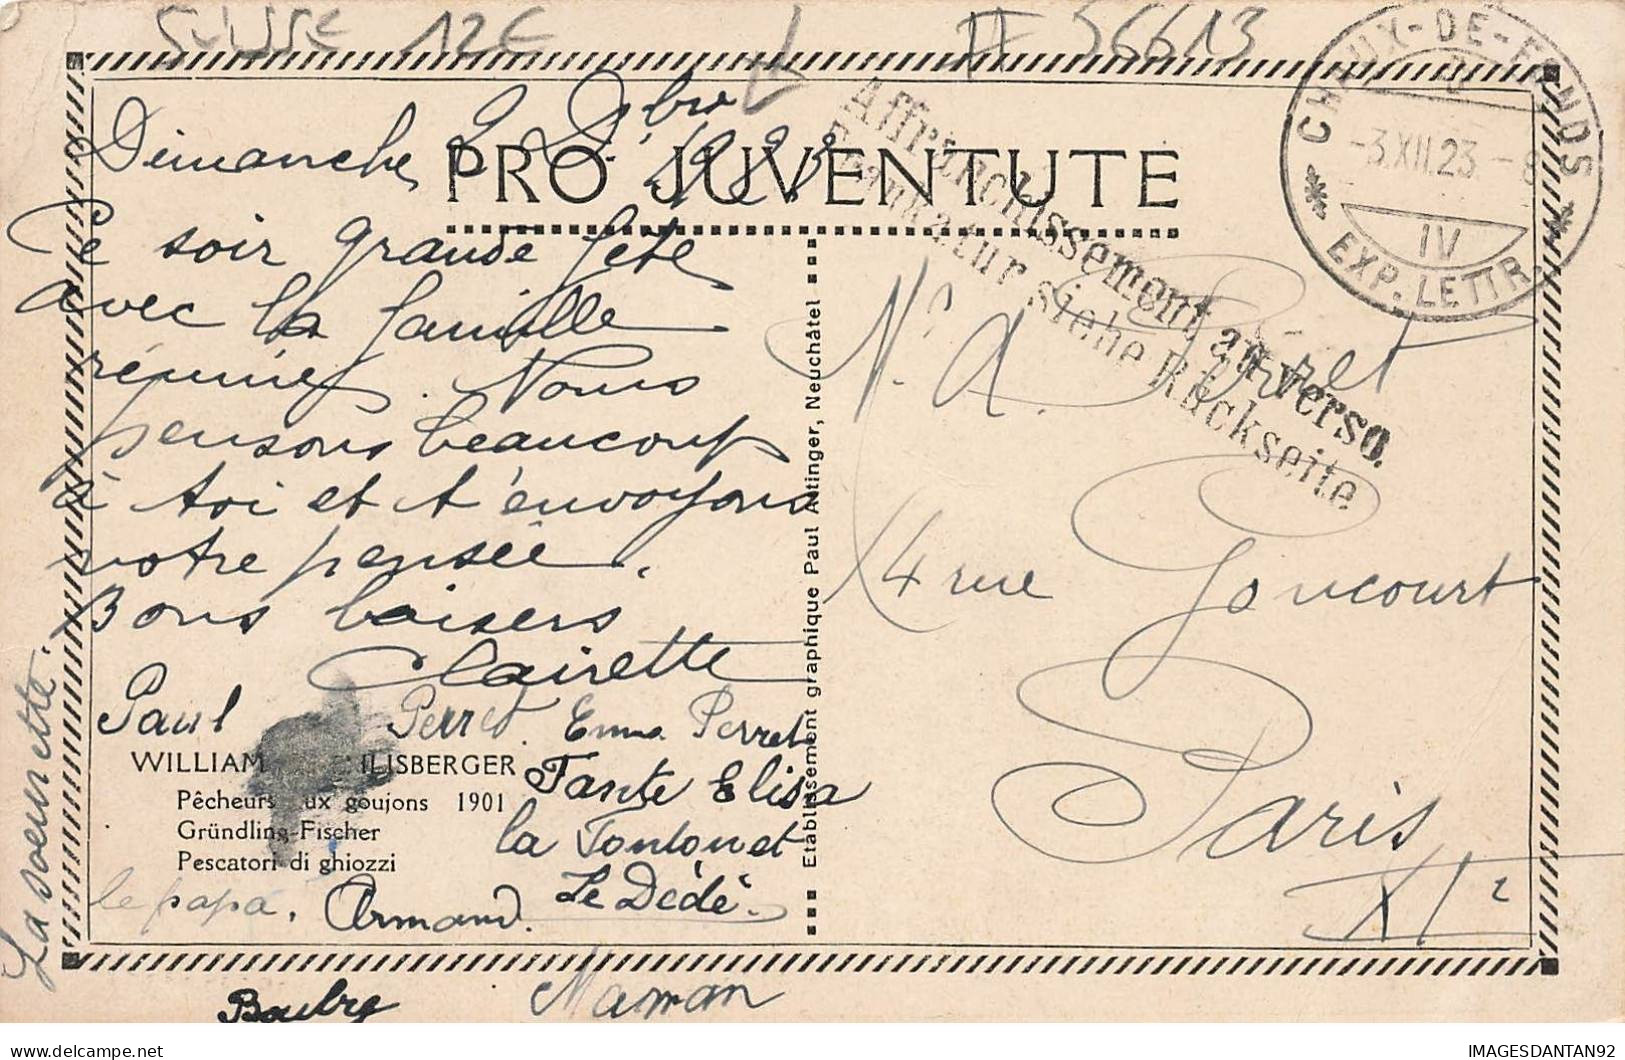 SUISSE 12E FF 56613
CHAUX-DE-FONDS
-3.XII.23.-8
IV
EXP. LETTR.
Affranchissement au verso.
Frankatur siehe Rückseite
PRO JUVENTUTE
Dimanche, 2 Xbre 1923
Ce soir grande fête
avec la famille
réunie. Nous
pensons beaucoup
à toi et t'envoyons
notre pensée.
Bons baisers
Clairette
Paul Perret. Emma Perret
Tante Elisa
la Toulouet
Le Dédé.
le papa. Armand.
La soeurette.
Maman
WILLIAM
Pêcheurs aux goujons 1901
Gründling-Fischer
Pescatori di ghiozzi
Etablissement graphique Paul Attinger, Neuchâtel
A. Perret
4 rue Goncourt
Paris
XIe
IMAGESDANTAN92